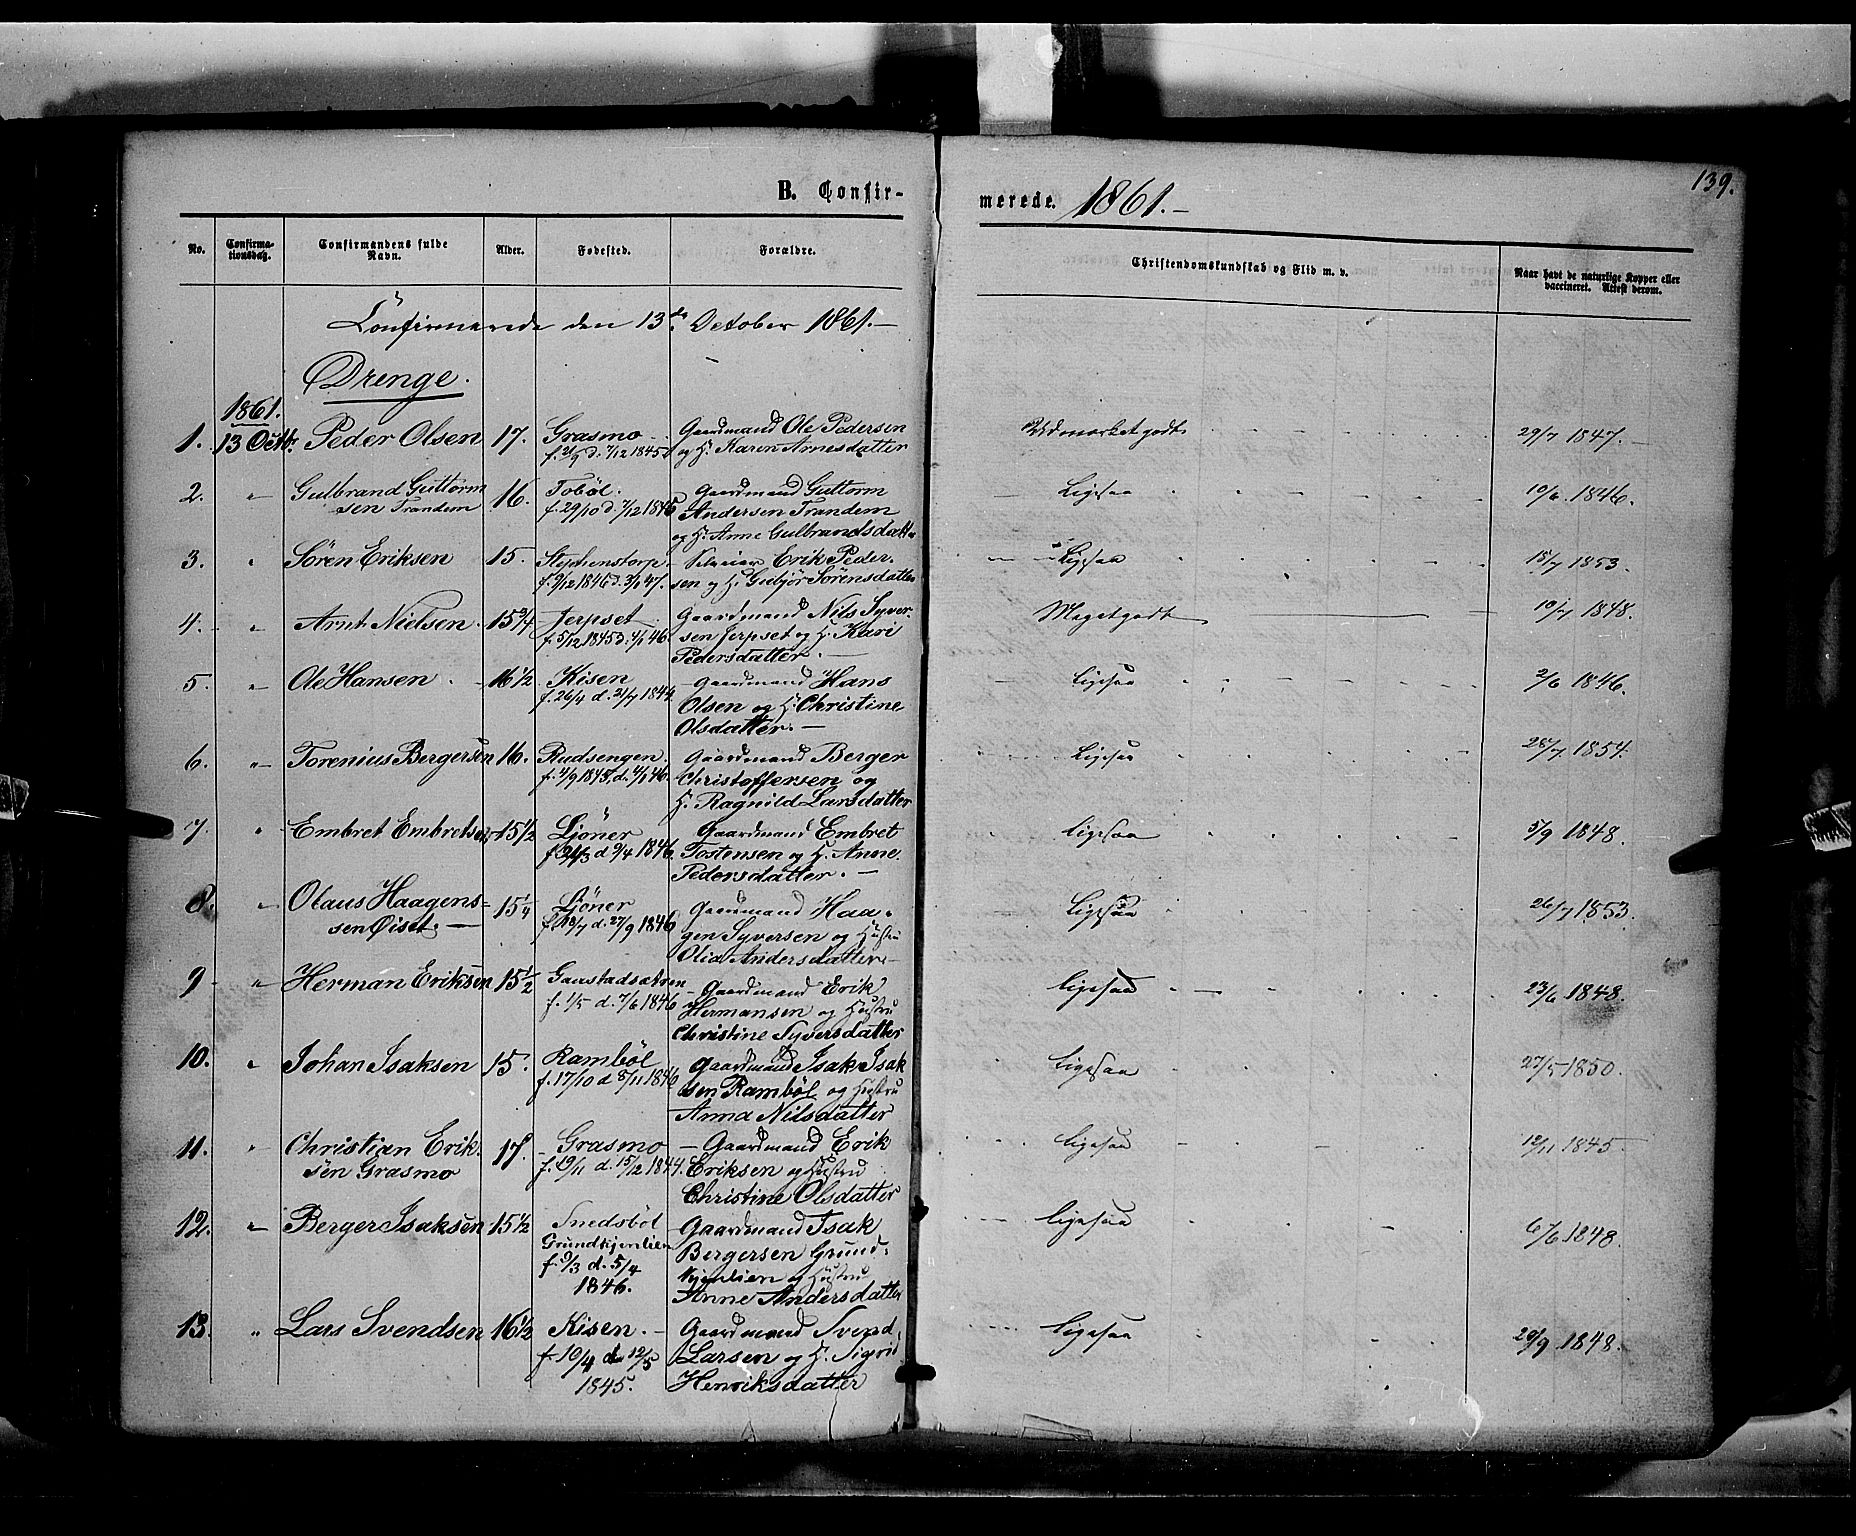 139.
B. Confir-
merede. 1861.-
No.
Confirma-
tionsdag.
Confirmandens fulde
Navn.
Alder.
Fødested.
Forældre.
Christendomskundskab og Flid m. v.
Naar havt de naturlige Kopper eller
vaccineret. Attest derom.
Confirmerede den 13de October 1861.-
Drenge.
1861.
1. 13 Octbr. Peder Olsen 17. Grasmo Gaardmand Ole Pedersen Udmærketgodt 29/7 1847.
d. 7/12 1845 og H. Karen Arnesdatter
2. " Gulbrand Guttorm 16. Tobøl. Gaardmand Guttorm Ligesaa 10/6 1846.
sen Trandem f. 29/10 d. 7/12 1845 Andersen Trandem
og H. Anne Gulbrandsdatter
3. " Sören Eriksen 15. Stephenstorp Erik Peder- Ligesaa 15/7 1853.
f. 9/12 1846 d. 3/1 47. sen og H. Gubjör Sörensdatter
4. " Arnt Nielsen. 15 3/4 Jerpset Gaardmand Nils Syver- Megetgodt 10/7 1848.
f. 5/12 1845 d. 4/1 46. sen Jerpset og H. Kari
Pedersdatter. -
5. " Ole Hansen 16 1/2 Kisen Gaardmand Hans Ligesaa 2/6 1846.
f. 26/4 d. 21/7 1844 Olsen og H. Christine
Olsdatter. -
6. " Torenius Bergersen 16. Rudsengen Gaardmand Berger Ligesaa 28/7 1854.
f. 4/9 1845. d. 4/1 46. Christoffersen og
H. Ragnild Larsdatter
7. " Embret Embretsen 15 1/2 Ljöner Gaardmand Embret Ligesaa 5/9 1848.
d. 9/4 1846 Tostensen og H. Anne
Pedersdatter. -
8. " Olaus Haagens= 15 1/4 Ljöner Gaardmand Haa- Ligesaa 26/7 1853.
sen Øiset. - f. 18/7 d. 27/9 1846 gen Syversen og Hustru
Olia Andersdatter -
9 " Herman Eriksen 15 1/2 Gaustadsætren Gaardmand Erik Ligesaa 23/6 1848.
f. 1/5 d. 7/6 1846 Hermansen og Hustru
Christine Syversdatter
10. " Johan Isaksen 15. Rambøl Gaardmand Isak Isak Ligesaa 27/5 1850.
f. 17/10 d 8/11 1846 sen Rambøl og Hustru
Anna Nilsdatter
11. " Christian Erik- 17. Grasmo Gaardmand Erik Ligesaa 12/11 1845.
sen Grasmo f. 19/11 d. 15/12 1844. Eriksen og Hustru
Christine Olsdatter
12. " Berger Isaksen 15 1/2 Smedsbøl Gaardmand Isak Ligesaa 6/6 1848.
Grundkjenlien Bergersen Grund-
f. 9/3 d. 5/4 kjenlien og Hustru
1846. Anne Andersdatter
13. " Lars Svendsen 16 1/2 Kisen. Gaardmand Svend Ligesaa 20/9 1848.
f. 10/4 d 12/5 Larsen og H. Sigrid
1845. Henriksdatter